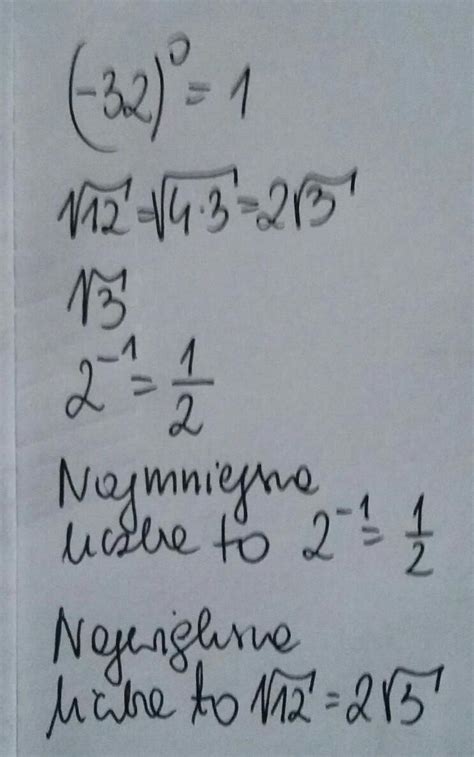 (-32)⁰ = 1
√12 = √4·3 = 2√3
√3
2⁻¹ = 1/2
Najmniejsza
liczba to 2⁻¹ = 1/2
Największa
liczba to √12 = 2√3